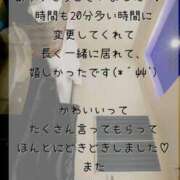 時間も20分多い時間に
変更してくれて
長く一緒に居れて、
嬉しかったです(*´艸`)
かわいいって
たくさん言ってもらって
ほんとにどきどきしました♡
また